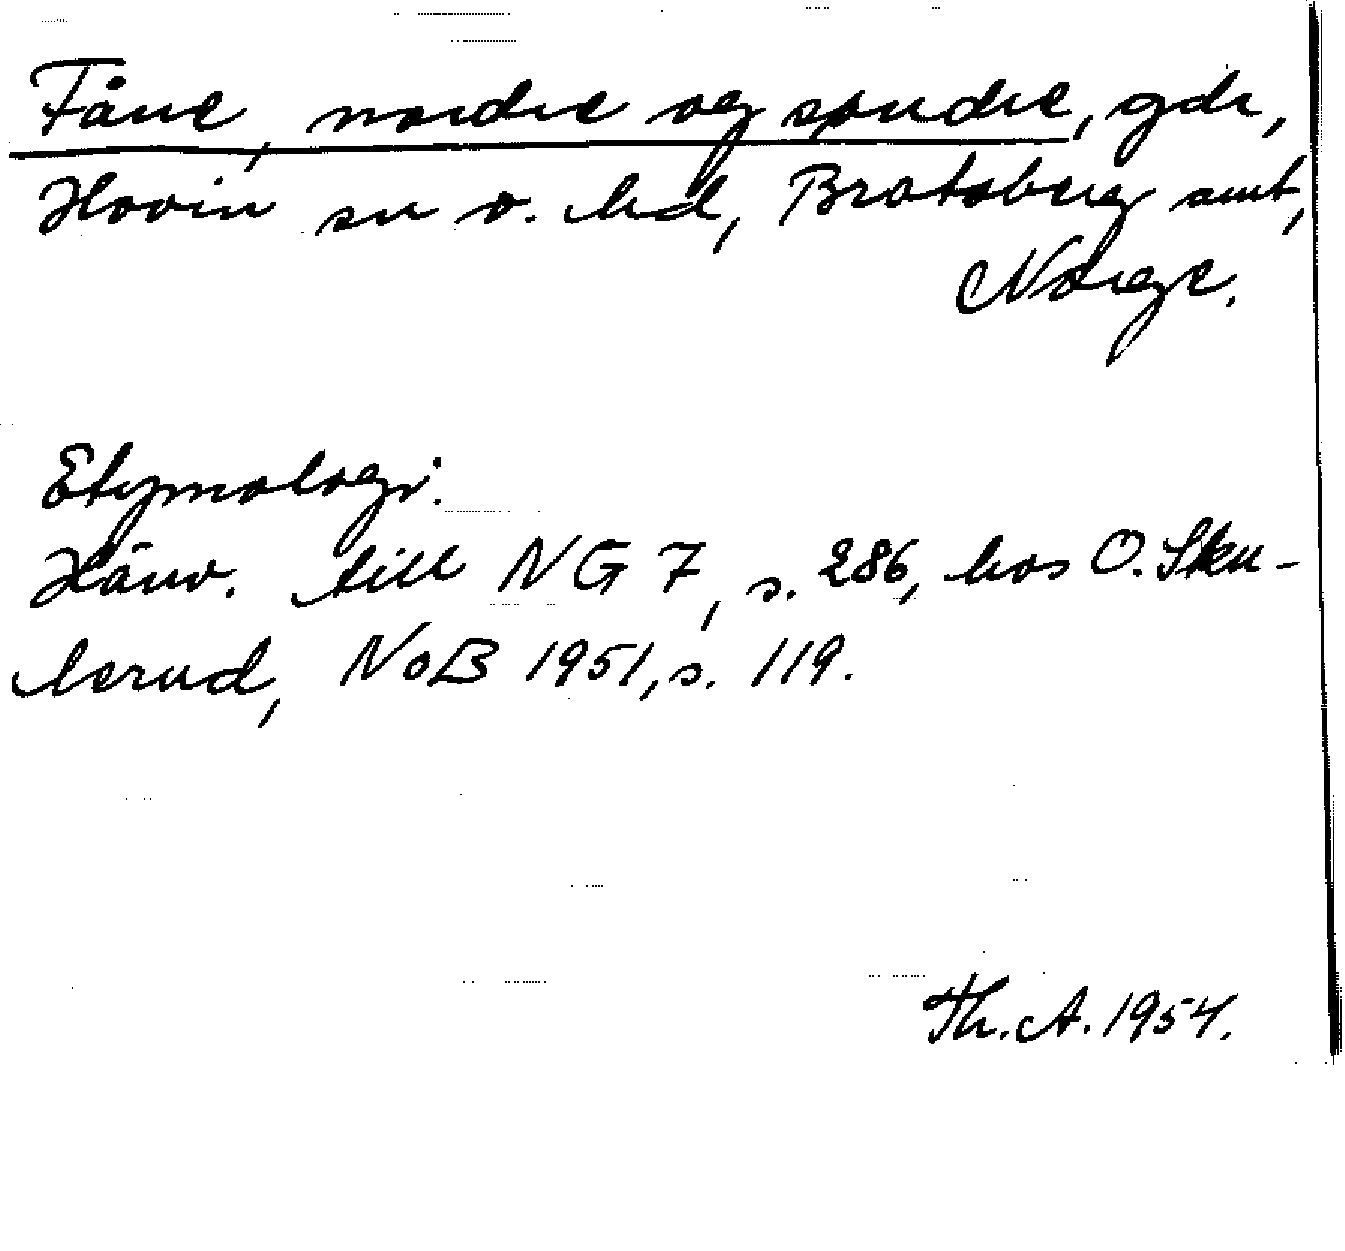 Fåne, nordre og søndre, gdr,
Hovin sn o. hd, Bratsberg amt,
Norge.
Etymologi:
Hänv. till NG 7, s. 286, hos O. Sku-
lerud, NoB 1951, s. 119.
Th. A. 1954.